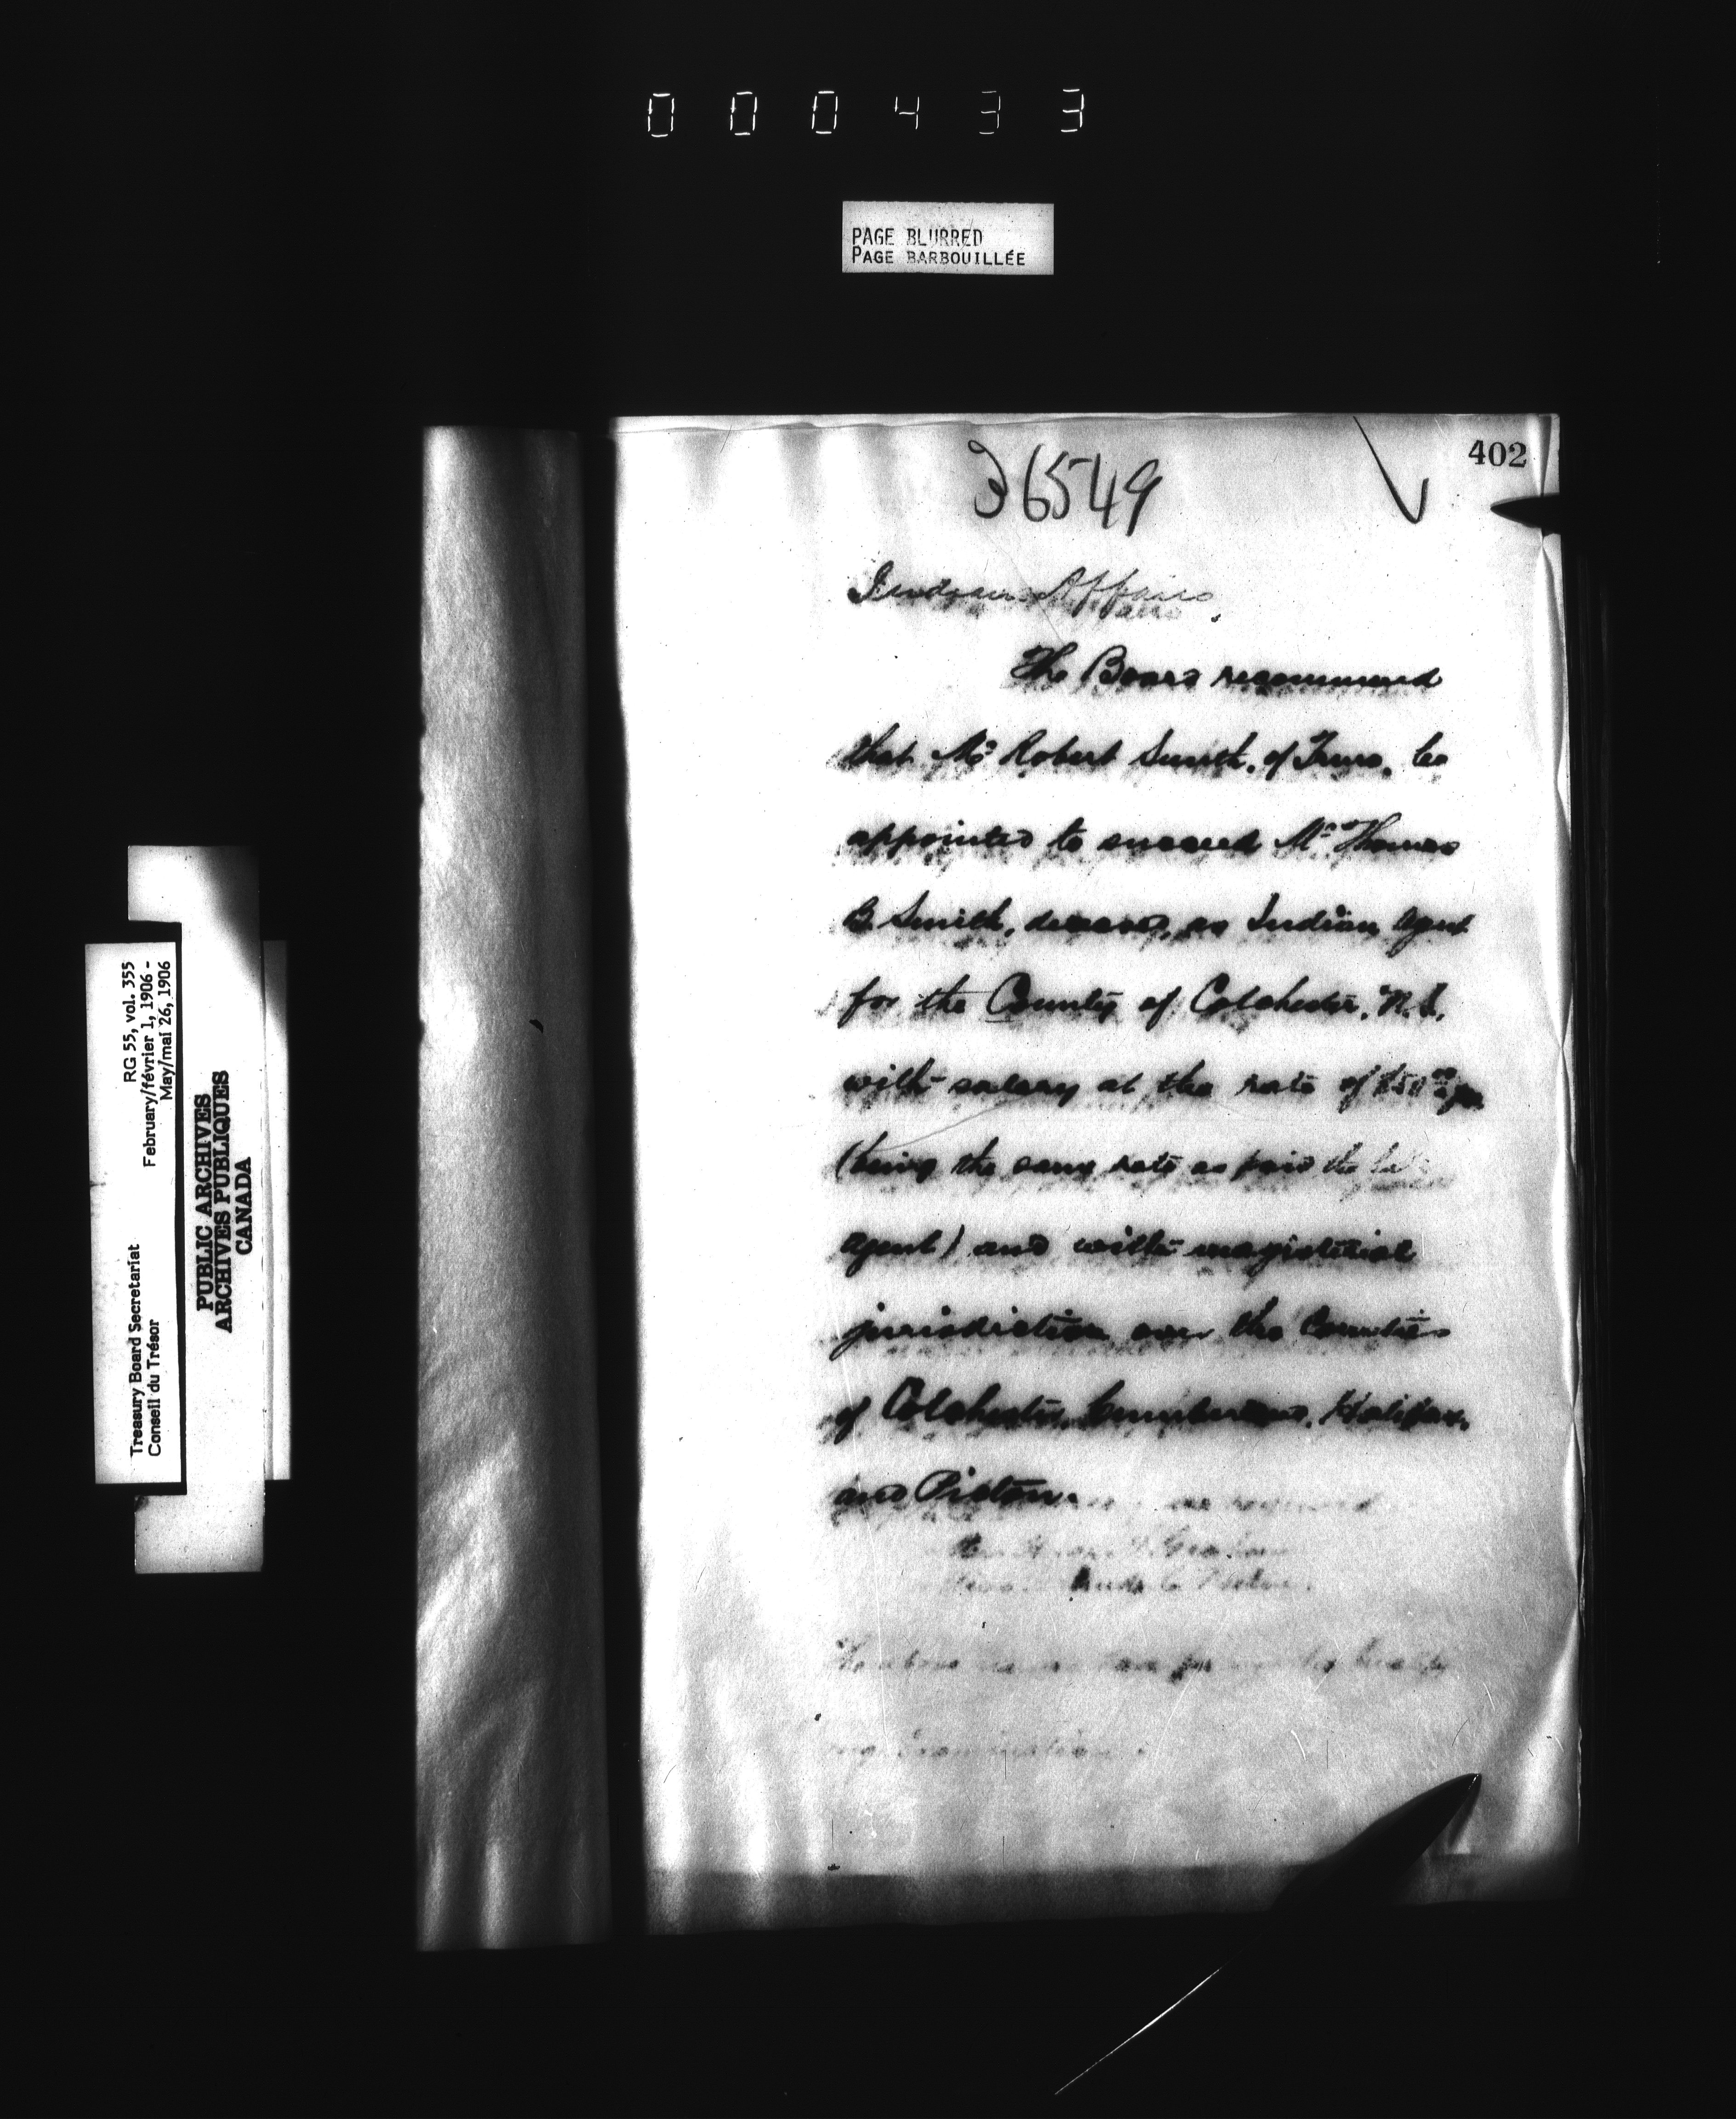 000433
PAGE BLURRED
PAGE BARBOUILLÉE
402
36549
Indian Affairs.
The Board recommend
that Mr Robert Smith, of Truro, be
appointed to succeed Mr Thomas
B Smith, deceased, as Indian Agent
for the County of Colchester, N.S.
with salary at the rate of
(being the same rate as paid the late
agent) and with magisterial
jurisdiction over the Counties
of Colchester, Cumberland, Halifax,
and Pictou.
The above
Examination.
RG 55, vol. 355
February/février 1, 1906 -
May/mai 26, 1906
Treasury Board Secretariat
Conseil du Trésor
PUBLIC ARCHIVES
ARCHIVES PUBLIQUES
CANADA